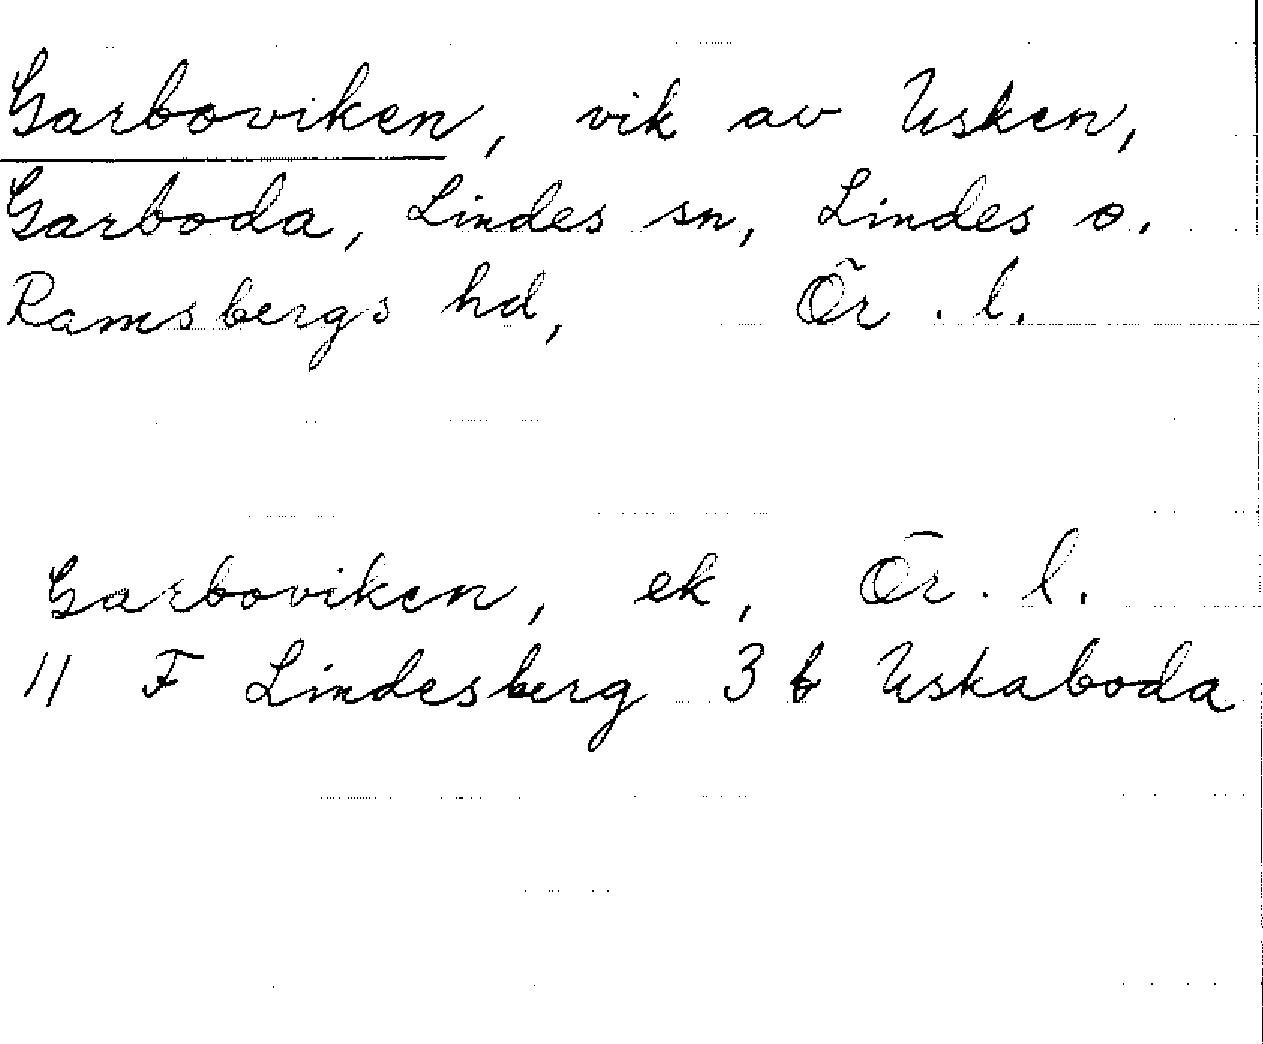 Garboviken, vik av Usken,
Garboda, Lindes sn, Lindes o.
Ramsbergs hd, Ör. l.
Garboviken, ek, Ör. l.
11 F Lindesberg 3 b Uskaboda